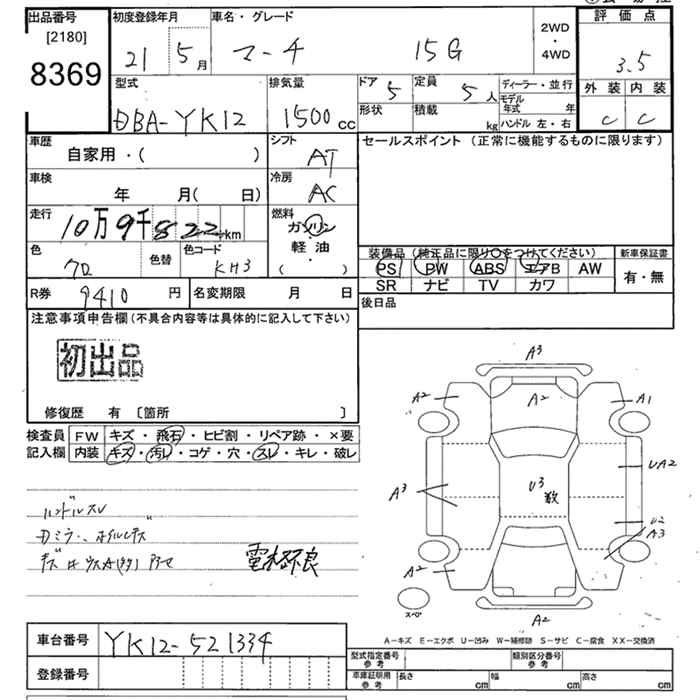 出品番号 初度登録年月 車名・グレード 評価点
[2180] 21 5月 マーチ 15G 2WD・4WD 3.5
8369
型式 排気量 ドア 5 定員 5人 ディーラー・並行 外装 内装
DBA-YK12 1500cc 形状 積載 kg モデル年式 年 C C
ハンドル 左・右
車歴 シフト セールスポイント (正常に機能するものに限ります)
自家用・( ) AT
車検 冷房
年 月( 日) AC
走行 燃料
10万9千822km ガソリン
軽・油
( )
色 色替 色コード 装備品 (純正品に限り○をつけてください) 新車保証書
KH3 PS PW ABS エアB AW 有・無
SR ナビ TV カワ
R券 9410円 名変期限 月 日 後日品
注意事項申告欄(不具合内容等は具体的に記入して下さい)
初出品
修復歴 有 〔箇所 〕
検査員 FW キズ・飛石・ヒビ割・リペア跡・×要
記入欄 内装 キズ・汚レ・コゲ・穴・スレ・キレ・破レ
ハンドルスレ
電格不良
A3
A2 A2 A1
A3 U3 数 UA2
U2
A3
A2
スペア A2
A-キズ E-エクボ U-凹み W-補修跡 S-サビ C-腐食 XX-交換済
車台番号 YK12-521334
登録番号
型式指定番号 参考 類別区分番号 参考
車庫証明用 参考 長さ cm 幅 cm 高さ cm